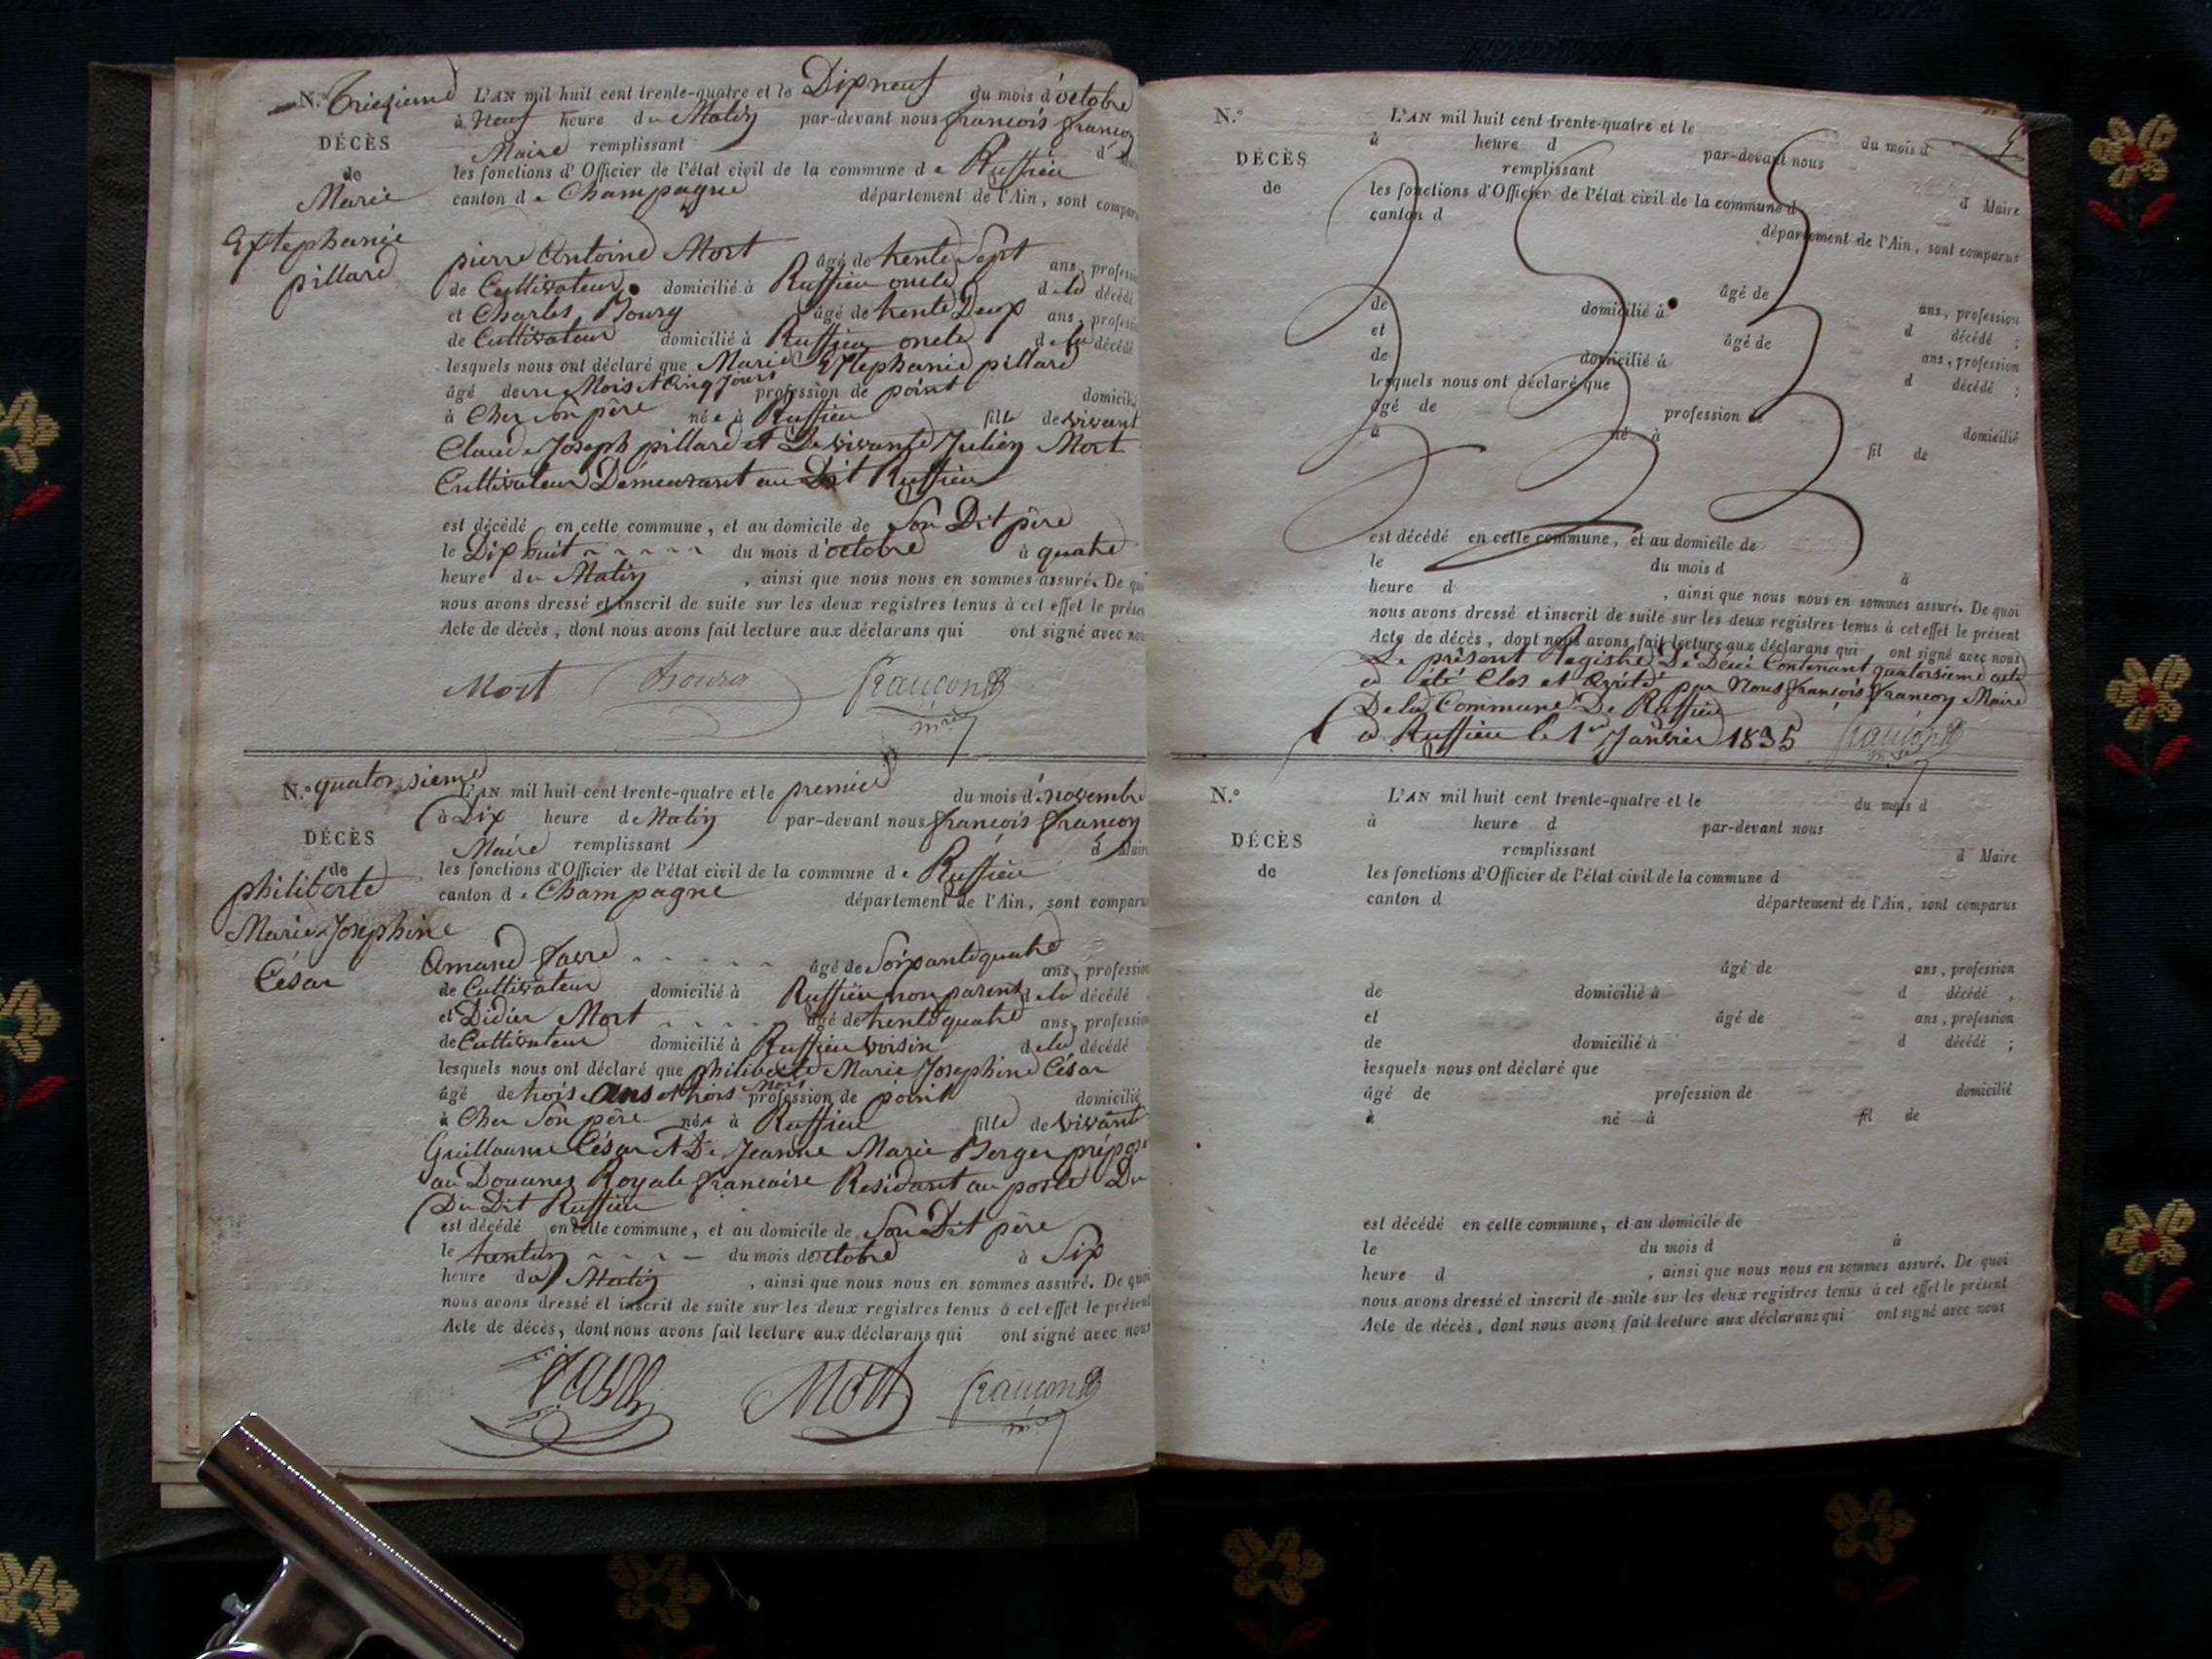 N.° treizieme
DÉCÈS
de
Marie
Estephanie
pillard
L'AN mil huit cent trente-quatre et le Dix neuf du mois d'octobre
à Neuf heure du Matin par-devant nous françois françon
Maire remplissant d Maire
les fonctions d'Officier de l'état civil de la commune de Ruffieu
canton de Champagne département de l'Ain, sont comparus
pierre Antoine Mort âgé de trente Sept ans, profession
de Cultivateur domicilié à Ruffieu oncle de la décédé
et Charles Bourg âgé de trente Deux ans, profession
de Cultivateur domicilié à Ruffieu oncle de la décédé
lesquels nous ont déclaré que Marie Estephanie pillard
âgé de un Mois et Cinq jours profession de point domicilié
à Cher Son père née à Ruffieu fille de vivant
Claude Joseph pillard et De vivante Julien Mort
Cultivateur Demeurant au Dit Ruffieu
est décédé en cette commune, et au domicile de Son Dit père
le Dix huit du mois d'octobre à quatre
heure du Matin, ainsi que nous nous en sommes assuré. De quoi
nous avons dressé et inscrit de suite sur les deux registres tenus à cet effet le présent
Acte de décès, dont nous avons fait lecture aux déclarans qui ont signé avec nous
Mort Bourg françon
mre
N.° quatorsieme
DÉCÈS
de
philiberte
Marie Josephine
César
L'AN mil huit cent trente-quatre et le premier du mois d novembre
à Dix heure de Matin par-devant nous françois françon
Maire remplissant d Maire
les fonctions d'Officier de l'état civil de la commune de Ruffieu
canton de Champagne département de l'Ain, sont comparus
Amand favre âgé de Soixante quatre ans, profession
de Cultivateur domicilié à Ruffieu non parent de la décédé
et Didier Mort âgé de trente quatre ans, profession
de Cultivateur domicilié à Ruffieu voisin de la décédé
lesquels nous ont déclaré que philiberte Marie Josephine César
âgé de trois ans et trois mois profession de point domicilié
à Cher Son père née à Ruffieu fille de vivant
Guillaume César et De Jeanne Marie Berger préposé
au Douanes Royale francaise Residant au poste Du
Du Dit Ruffieu
est décédé en cette commune, et au domicile de Son Dit père
le trentun du mois de octobre à Six
heure du Matin, ainsi que nous nous en sommes assuré. De quoi
nous avons dressé et inscrit de suite sur les deux registres tenus à cet effet le présent
Acte de décès, dont nous avons fait lecture aux déclarans qui ont signé avec nous
Mort françon
mre
N.°
DÉCÈS
de
L'AN mil huit cent trente-quatre et le du mois d
à heure d par-devant nous
remplissant d Maire
les fonctions d'Officier de l'état civil de la commune d
canton d département de l'Ain, sont comparus
âgé de ans, profession
de domicilié à d décédé ;
et âgé de ans, profession
de domicilié à d décédé ;
lesquels nous ont déclaré que
âgé de profession de domicilié
à né à fil de
est décédé en cette commune, et au domicile de
le du mois d à
heure d , ainsi que nous nous en sommes assuré. De quoi
nous avons dressé et inscrit de suite sur les deux registres tenus à cet effet le présent
Acte de décès, dont nous avons fait lecture aux déclarans qui ont signé avec nous
Le présent Registre De Décè Contenant quatorsieme acte
a été Clos et Arrété par Nous françois françon Maire
De la Commune De Ruffieu
a Ruffieu le 1er Janvier 1835 françon
mre
N.°
DÉCÈS
de
L'AN mil huit cent trente-quatre et le du mois d
à heure d par-devant nous
remplissant d Maire
les fonctions d'Officier de l'état civil de la commune d
canton d département de l'Ain, sont comparus
âgé de ans, profession
de domicilié à d décédé ,
et âgé de ans, profession
de domicilié à d décédé ;
lesquels nous ont déclaré que
âgé de profession de domicilié
à né à fil de
est décédé en cette commune, et au domicile de
le du mois d à
heure d , ainsi que nous nous en sommes assuré. De quoi
nous avons dressé et inscrit de suite sur les deux registres tenus à cet effet le présent
Acte de décès, dont nous avons fait lecture aux déclarans qui ont signé avec nous